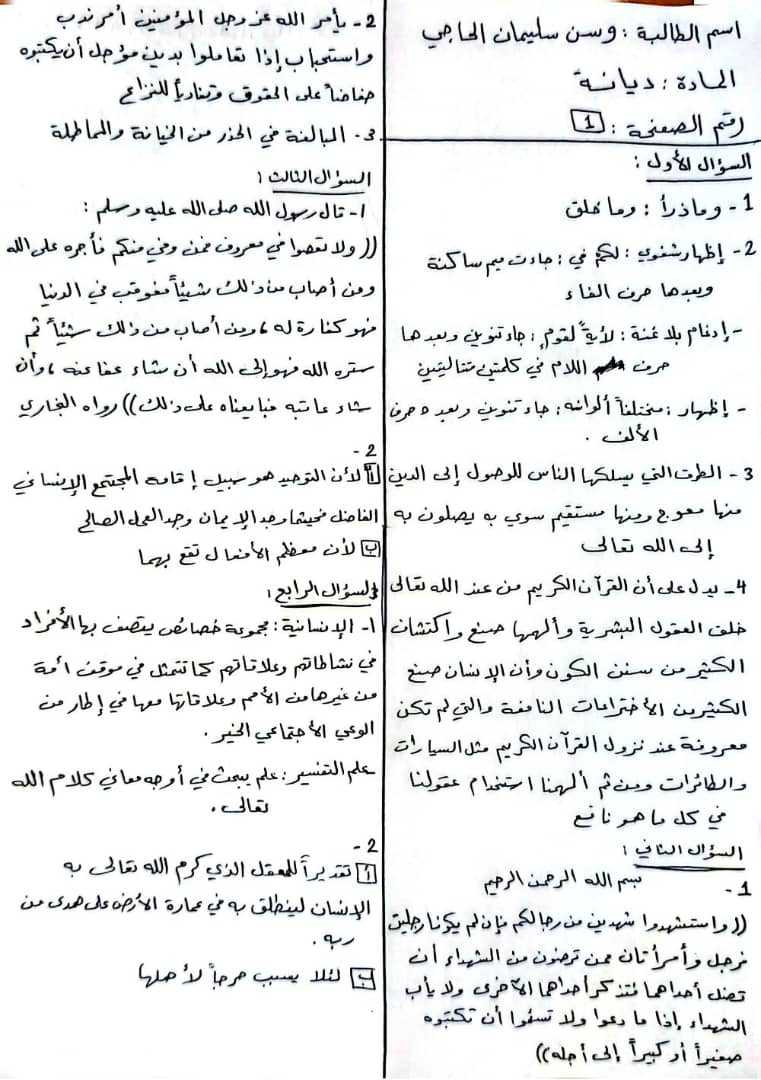 اسم الطالبة : وسن سليمان الحاجي
المادة : ديانة
رقم الصفحة : 1
السؤال الأول :
1- وماذرأ : وما خلق
2- إظهار شفوي : لكم في : جاءت ميم ساكنة
وبعدها حرف الفاء
- إدغام بلا غنة : لأيةً لقوم : جاء تنوين وبعدها
حرف اللام في كلمتين متتاليتين
- إظهار : مختلفاً ألوانه : جاء تنوين وبعده حرف
الألف .
3- الطرق التي يسلكها الناس للوصول إلى الدين
منها معوج ومنها مستقيم سوي به يصلون به
إلى الله تعالى
4- يدل على أن القرآن الكريم من عند الله تعالى
خلق العقول البشرية وألهمها صنع واكتشاف
الكثير من سنن الكون وأن الإنسان صنع
الكثير من الأختراعات النافعة والتي لم تكن
معروفة عند نزول القرآن الكريم مثل السيارات
والطائرات ومن ثم ألهمنا استخدام عقولنا
في كل ما هو نافع
السؤال الثاني :
1- بسم الله الرحمن الرحيم
(( واستشهدوا شهدين من رجالكم فإن لم يكونا رجلين
فرجل وأمرأتان ممن ترضون من الشهداء أن
تضل أحداهما فتذكر أحداهما الأخرى ولا يأب
الشهداء إذا ما دعوا ولا تسئموا أن تكتبوه
صغيراً أو كبيراً إلى أجله ))
2- يأمر الله عز وجل المؤمنين أمر ندب
واستحباب إذا تعاملوا بدين مؤجل أن يكتبوه
حفاظاً على الحقوق وتفادياً للنزاع
3- المبالغة في الحذر من الخيانة والمماطلة
السؤال الثالث :
1- قال رسول الله صلى الله عليه وسلم :
(( ولا تعصوا في معروف فمن وفى منكم فأجره على الله
ومن أصاب من ذلك شيئاً فعوقب في الدنيا
فهو كفارة له ، ومن أصاب من ذلك شيئاً ثم
ستره الله فهو إلى الله أن شاء عفا عنه ، وأن
شاء عاقبه فبايعناه على ذلك )) رواه البخاري
2-
أ لأن التوحيد هو سبيل إقامة المجتمع الإنساني
الفاضل فحيثما وجد الإيمان وجد العمل الصالح
ب لأن معظم الأفعال تقع بهما
السؤال الرابع :
1- الإنسانية : مجموعة خصائص يتصف بها الأفراد
في نشاطاتهم وعلاقاتهم كما تتمثل في موقف أمة
من غيرها من الأمم وعلاقاتها معها في إطار من
الوعي الأجتماعي الخير .
علم التفسير : علم يبحث في أوجه معاني كلام الله
تعالى .
2-
أ تقديراً للعقل الذي كرم الله تعالى به
الإنسان لينطلق به في عمارة الأرض على هدى من
ربه .
ب لئلا يسبب حرجاً لأهلها